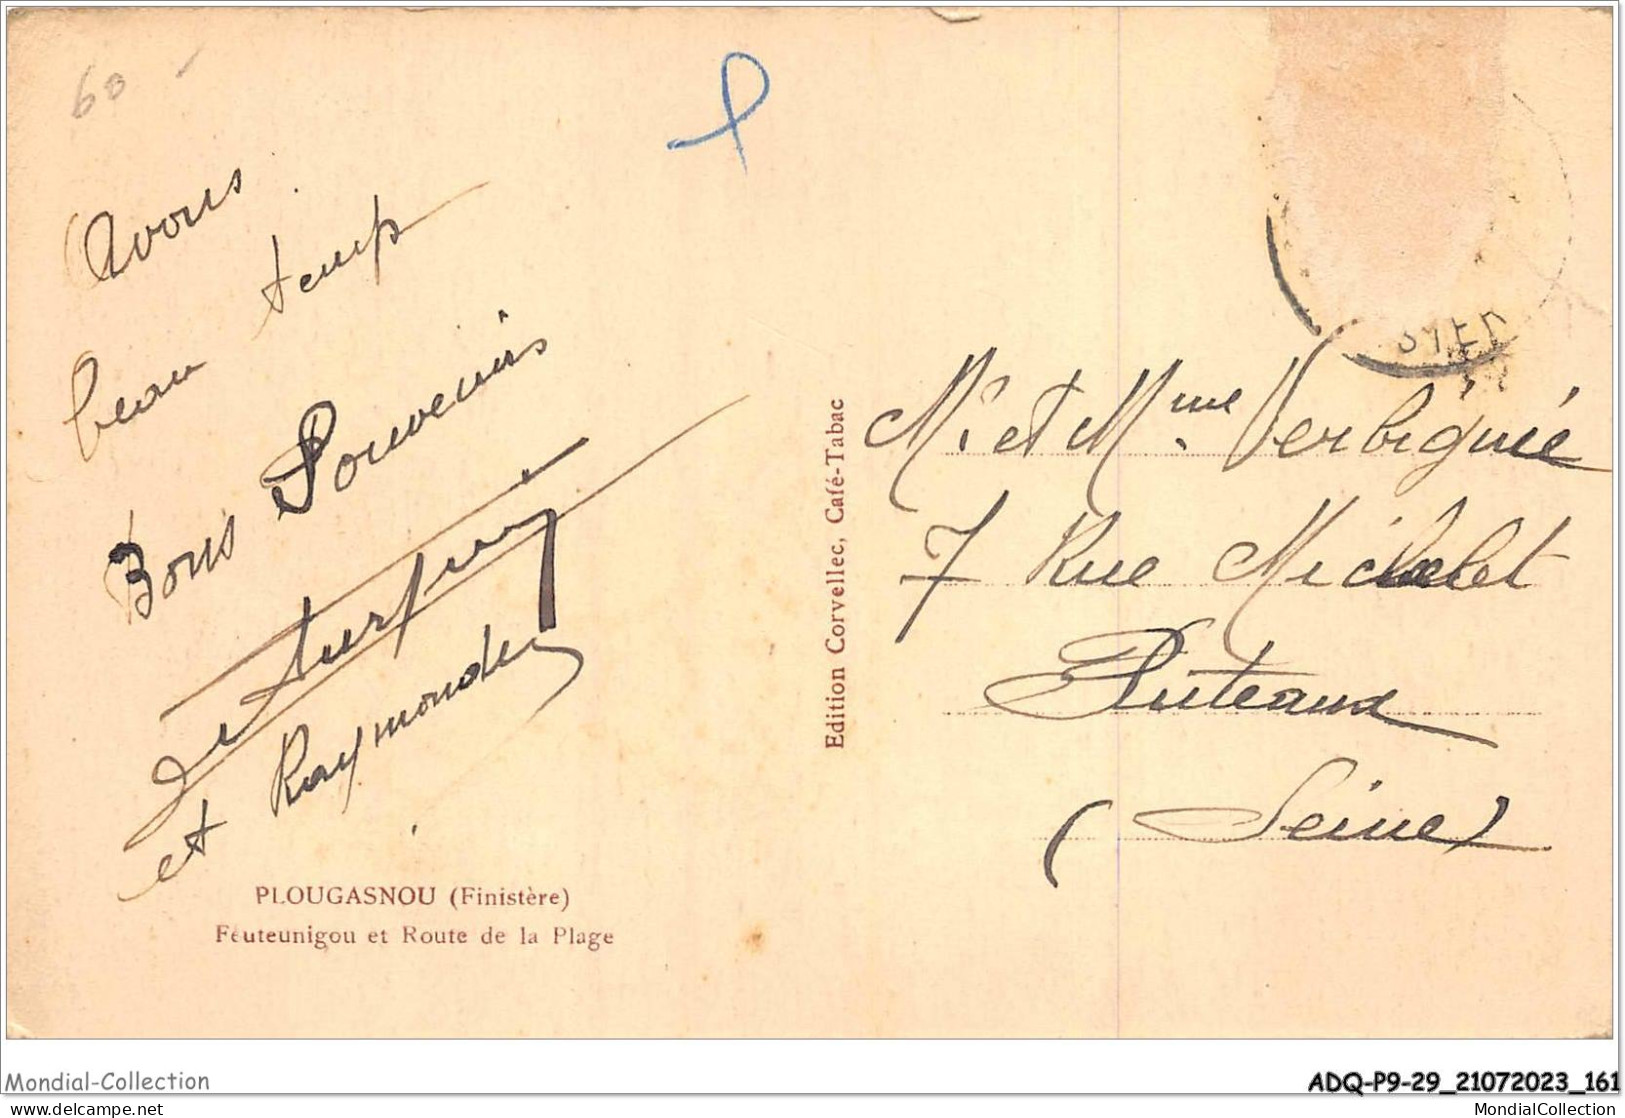 60 -
Avons
beau temps
Bons Souvenirs
et Raymonde
PLOUGASNOU (Finistère)
Feuteunigou et Route de la Plage
Edition Corvellec, Café-Tabac
Mr et Mme Verbiguié
7 Rue Michelet
Puteaux
(Seine)
Mondial-Collection
ADQ-P9-29_21072023_161
delcampe.net
MondialCollection